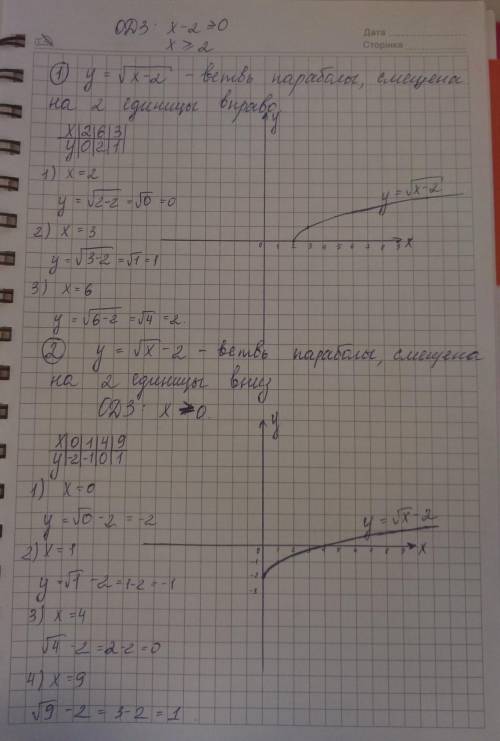 ОДЗ: x-2≥0
x≥2
Дата
Сторінка
① y = √(x-2) - ветвь параболы, смещена
на 2 единицы вправо
x|2|6|3|
y|0|2|1|
1) x=2
y = √(2-2) = √0 = 0
2) x = 3
y = √(3-2) = √1 = 1
3) x=6
y = √(6-2) = √4 = 2.
y
y=√(x-2)
0 1 2 3 4 5 6 7 8 9 x
② y = √x - 2 - ветвь параболы, смещена
на 2 единицы вниз
ОДЗ: x ≥ 0
x|0|1|4|9
y|-2|-1|0|1
1) x=0
y = √0 - 2 = -2
2) x=1
y = √1 - 2 = 1-2 = -1
3) x=4
√4 - 2 = 2-2 = 0
4) x=9
√9 - 2 = 3-2 = 1.
y
y=√x-2
0 1 2 3 4 5 6 7 8 9 x
-1
-2
-3